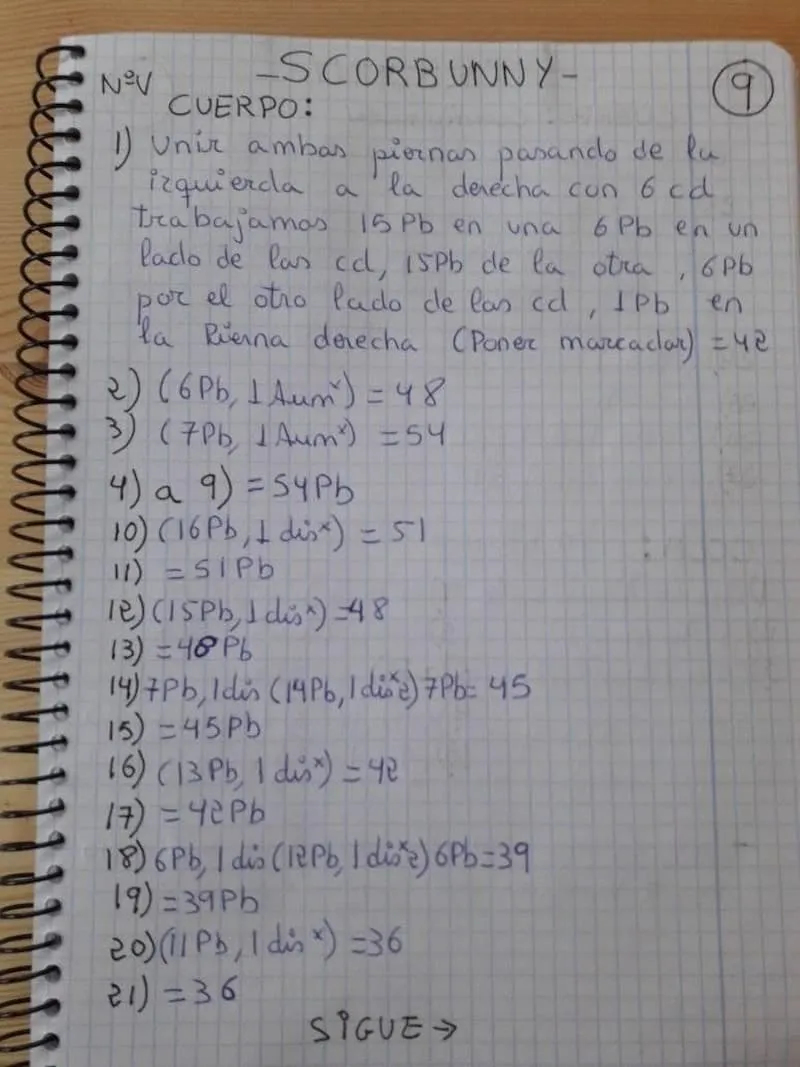 -SCORBUNNY-
NºV
9
CUERPO:
1) Unir ambas piernas pasando de la
izquierda a la derecha con 6 cd
trabajamos 15 Pb en una 6 Pb en un
lado de las cd, 15Pb de la otra, 6Pb
por el otro lado de las cd, 1Pb en
la Pierna derecha (Poner marcador) = 42
2) (6Pb, 1 Aumˣ) = 48
3) (7Pb, 1 Aumˣ) = 54
4) a 9) = 54Pb
10) (16Pb, 1 disˣ) = 51
11) = 51Pb
12) (15Pb, 1 disˣ) = 48
13) = 48 Pb
14) 7Pb, 1 dis (14Pb, 1 disˣ2) 7Pb = 45
15) = 45Pb
16) (13Pb, 1 disˣ) = 42
17) = 42Pb
18) 6Pb, 1 dis (12Pb, 1 disˣ2) 6Pb = 39
19) = 39Pb
20) (11Pb, 1 disˣ) = 36
21) = 36
SIGUE →